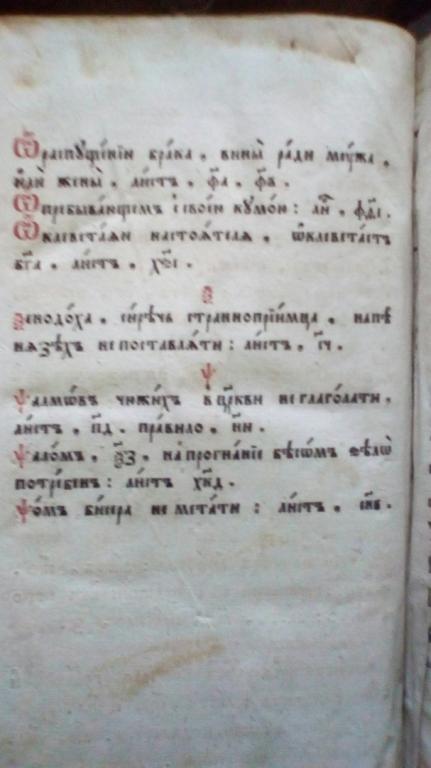 Ѿ распꙋщенїи бра́ка , вины̀ ра́ди мꙋ́жа ,
и҆лѝ жены̀ . ли́стъ . ф҃а . ф҃в .
Ѡ҆ пребыва́ющемъ с̾ свое́ю кꙋмо́ю : ли́ .
Ѡ҆ клевета́ѧи настоѧ́телѧ , ѡ҆клевета́етъ
бг҃а . ли́стъ .
ѯ
ѯенодо́ха , си́рѣчь страннопрїи́мца , на пѣ́
нѧзѣхъ не поставлѧ́ти : ли́стъ .
ѱ
ѱалмѡ́въ чюжи́хъ в̾ цр҃кви не глаго́лати ,
ли́стъ . пд҃ . пра́вило . н҃и .
ѱало́мъ , на прогна́нїе бѣсѡ́мъ ѕѣлѡ̀
потре́бенъ : ли́стъ х҃кд .
ѱо́мъ би́сера не мета́ти : ли́стъ .